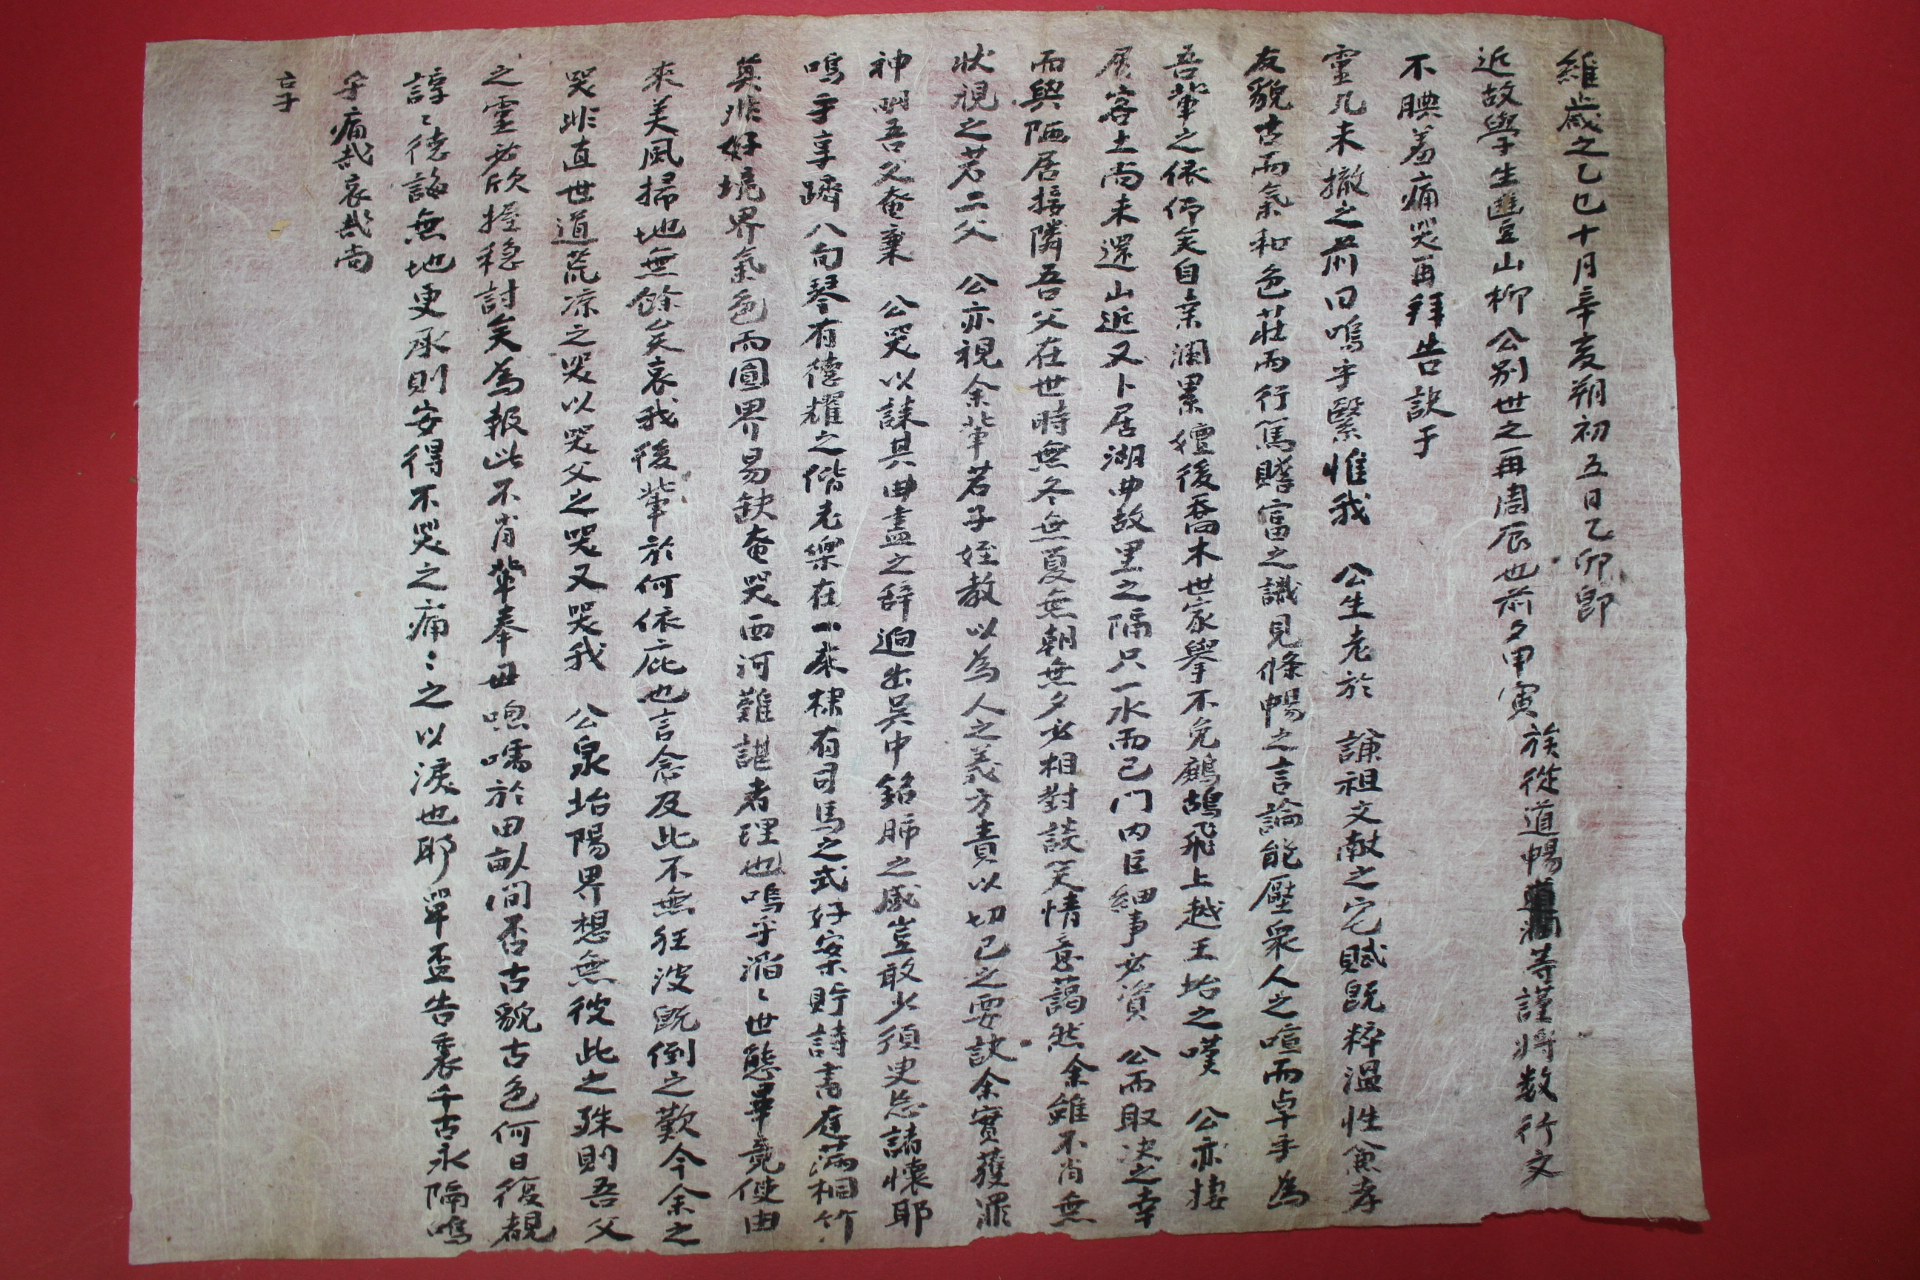 維歲之乙巳十月辛亥朔初五日乙卯卽
近故學生豊山柳 公別世之再周辰也前夕甲寅 族從道暢 等謹將数行文
不腆羞痛哭再拜告訣于
靈几未撤之前曰嗚乎緊惟我 公生老於 謙祖文献之宅賦旣粹溫性兼孝
友貌古而氣和色莊而行篤贍富之識見條暢之言論能壓衆人之喧而卓乎為
吾輩之依仰矣自李瀾累嬗後喬木世家擧不免鷓鴣飛上越王坮之嘆 公亦捿
屑客土尚未還山近又卜居湖曲故里之隔只一水而己門內巨細事必資 公而取决之幸
而與陋居接隣吾父在世時無冬無夏無朝無夕必相對談笑情意藹然余雖不肖無
狀視之若二父 公亦視余輩若子姪教以為人之義方責以切己之要訣余實獲罪
神明吾父奄棄 公哭以誄其曲盡之辞迫出吳中銘肺之感豈敢少須臾忘諸懷耶
嗚乎享躋八旬琴有德耀之偕老樂在一床棣有司馬之式好案貯詩書庭滿桐竹
莫非好境界氣色而圓界易缺奄哭西河難諶者理也嗚乎滔〻世態畢竟使由
來美風掃地無餘矣哀我後輩於何依庇也言念及此不無狂波旣倒之歎今余之
哭非直世道荒凉之哭以哭父之哭又哭我 公泉坮陽界想無彼此之殊則吾父
之靈必欣握穩討矣為報此不肖輩奉毋 於田畒間否古貌古色何日復覩
諄〻德誨無地更承則安得不哭之痛〻之以淚也耶單盃告衷千古永隔嗚
乎痛哉哀哉尚
享